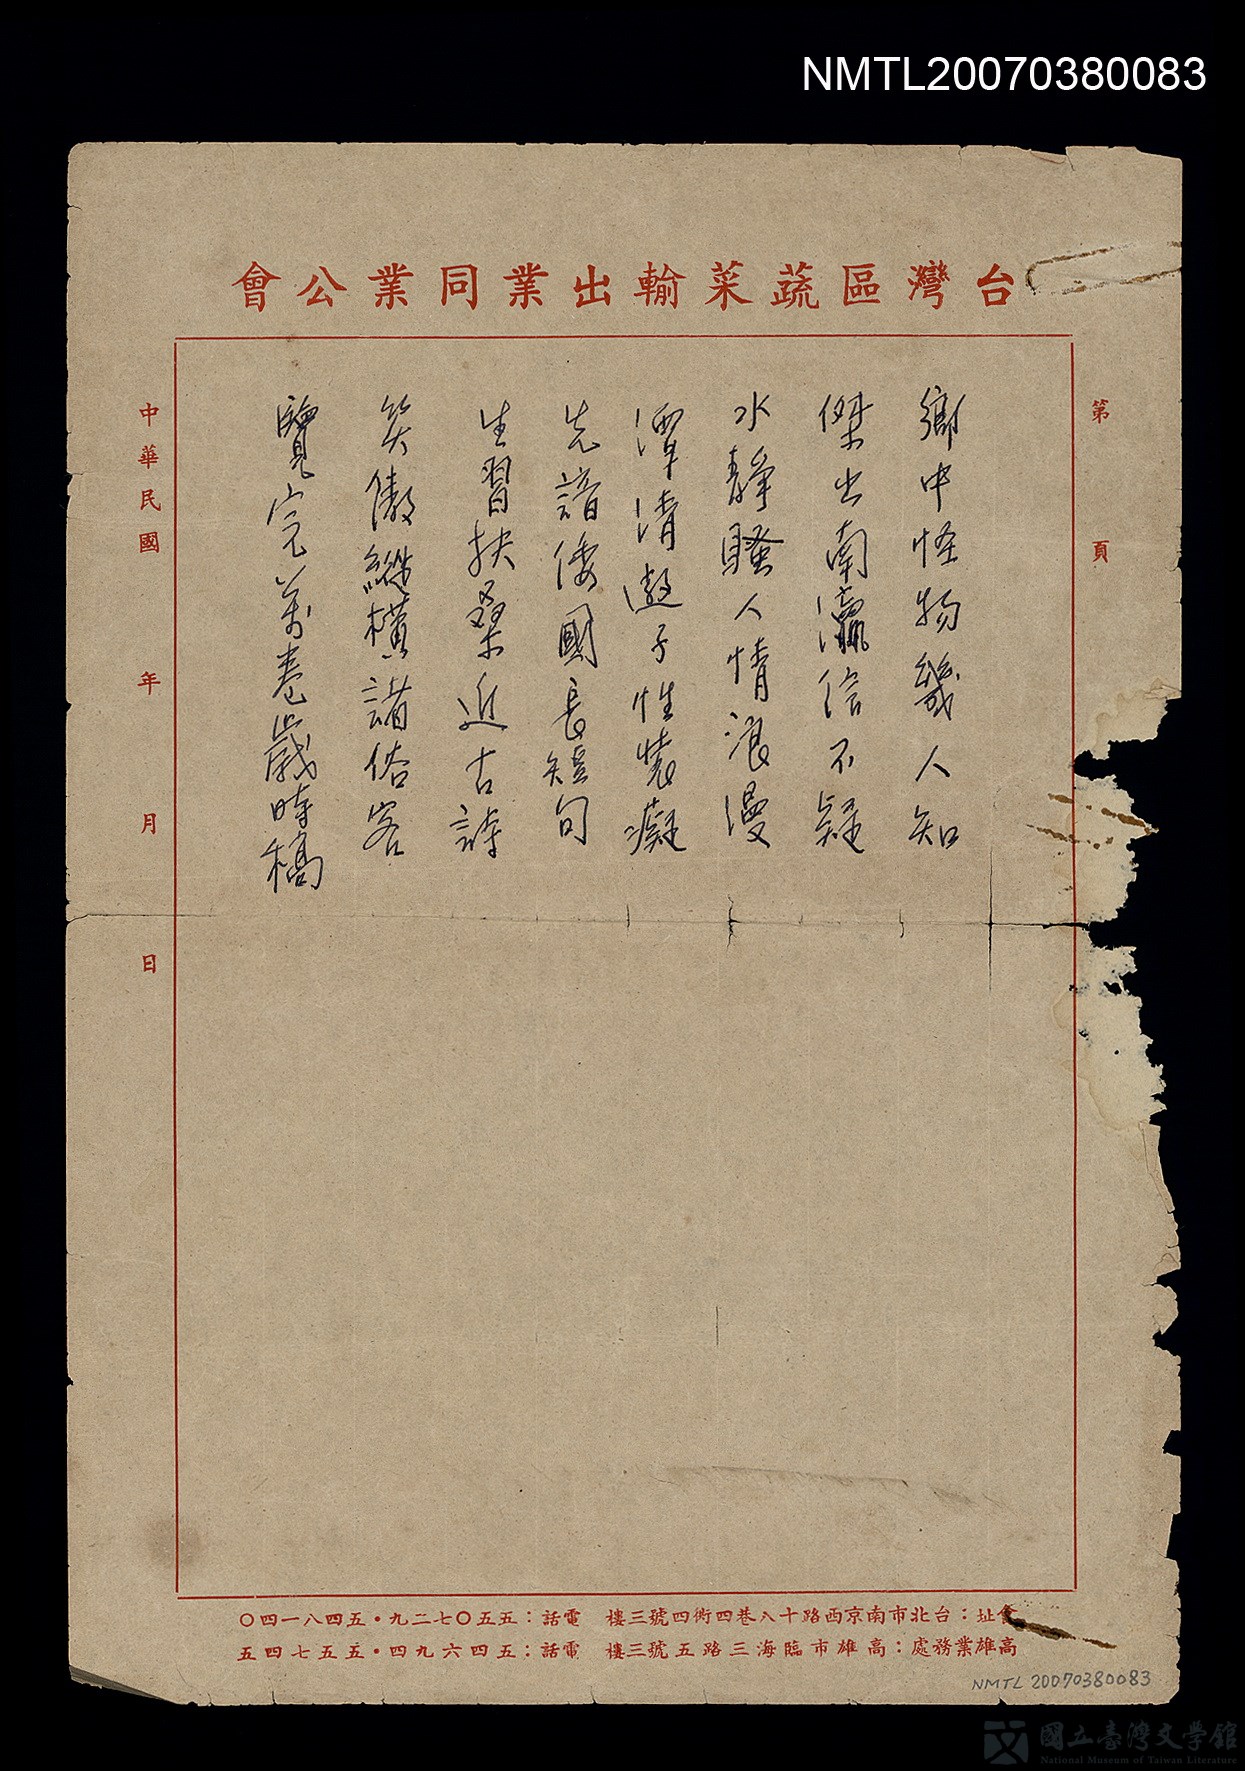 NMTL20070380083
台灣區蔬菜輸出業同業公會
第 頁
鄉中怪物幾人知
傑出南瀛信不疑
水靜騷人情浪漫
潭清遨子性癡
先諳倭國長短句
生習扶桑近古詩
笑傲縱橫諸俗客
覽完萬卷歲時稿
中華民國 年 月 日
會址：台北市南京西路十八巷四衖四號三樓 電話：五五〇七二九・五四八一四〇
高雄業務處：高雄市臨海三路五號三樓 電話：五四六九四・五五七四五
NMTL 20070380083
國立臺灣文學館
National Museum of Taiwan Literature